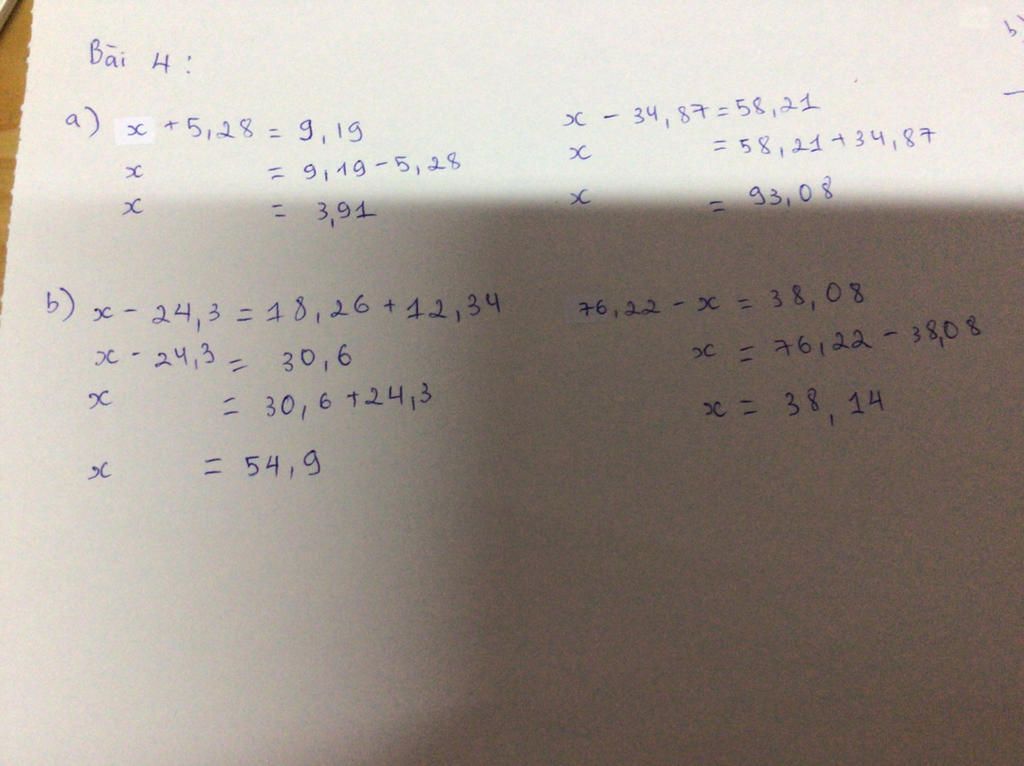 Bài 4:
a) x + 5,28 = 9,19
x = 9,19 - 5,28
x = 3,91
x - 34,87 = 58,21
x = 58,21 + 34,87
x = 93,08
b) x - 24,3 = 18,26 + 12,34
x - 24,3 = 30,6
x = 30,6 + 24,3
x = 54,9
76,22 - x = 38,08
x = 76,22 - 38,08
x = 38,14
b)